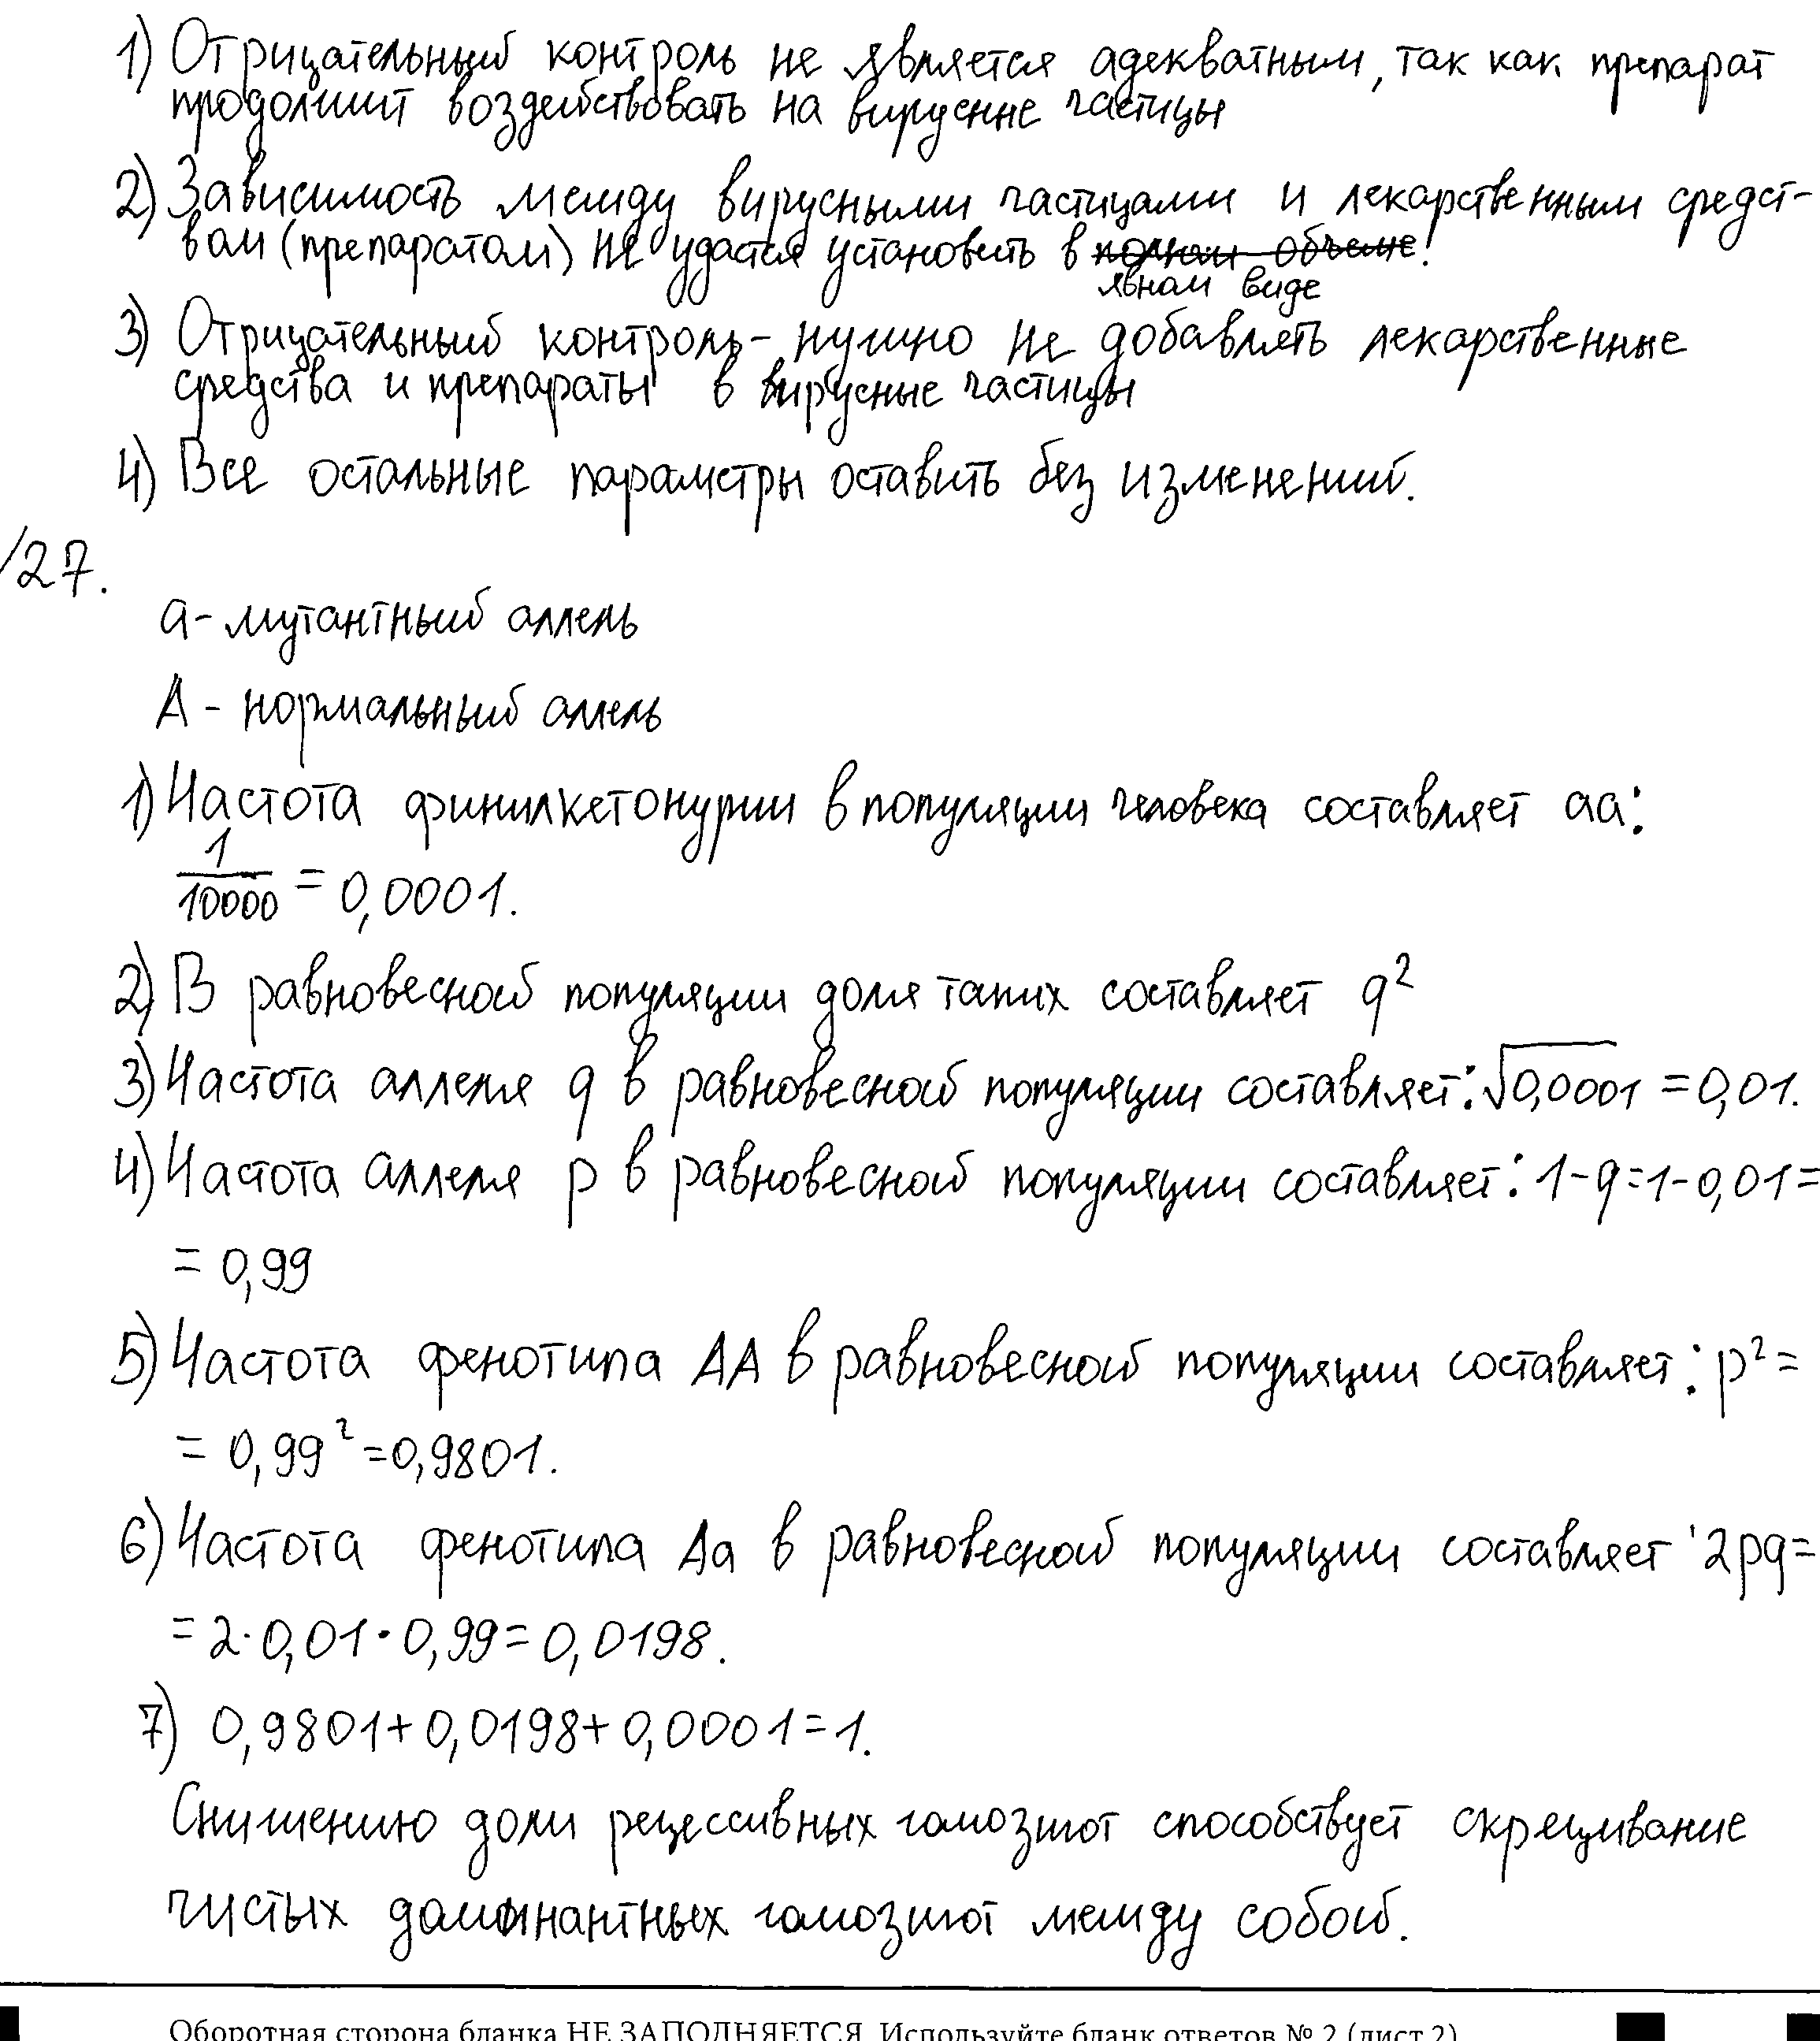 1) Отрицательный контроль не является адекватным, так как препарат
продолжит воздействовать на вирусные частицы
2) Зависимость между вирусными частицами и лекарственным средст-
вом (препаратом) не удастся установить в полном объеме.
явном виде
3) Отрицательный контроль - нужно не добавлять лекарственные
средства и препараты в вирусные частицы
4) Все остальные параметры оставить без изменений.
27.
a - мутантный аллель
A - нормальный аллель
1) Частота финилкетонурии в популяции человека составляет aa:
1/10000 = 0,0001.
2) В равновесной популяции доля таких составляет q²
3) Частота аллеля q в равновесной популяции составляет: √0,0001 = 0,01.
4) Частота аллеля p в равновесной популяции составляет: 1-q=1-0,01=
= 0,99
5) Частота фенотипа AA в равновесной популяции составляет: p² =
= 0,99² = 0,9801.
6) Частота фенотипа Aa в равновесной популяции составляет 2pq =
= 2·0,01·0,99 = 0,0198.
7) 0,9801 + 0,0198 + 0,0001 = 1.
Снижению доли рецессивных гомозигот способствует скрещивание
чистых доминантных гомозигот между собой.
Оборотная сторона бланка НЕ ЗАПОЛНЯЕТСЯ. Используйте бланк ответов № 2 (лист 2)